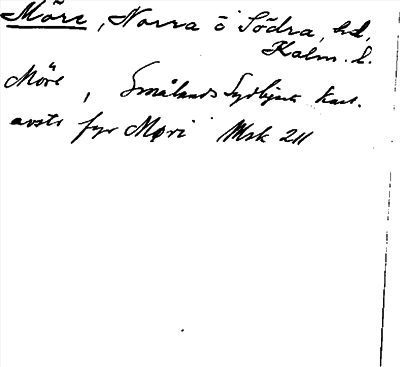 Möre, Norra o Södra, hd,
Kalm. l.
Möre, Smålands Sydöstr kust.
avstr fyr Møri Msk 211